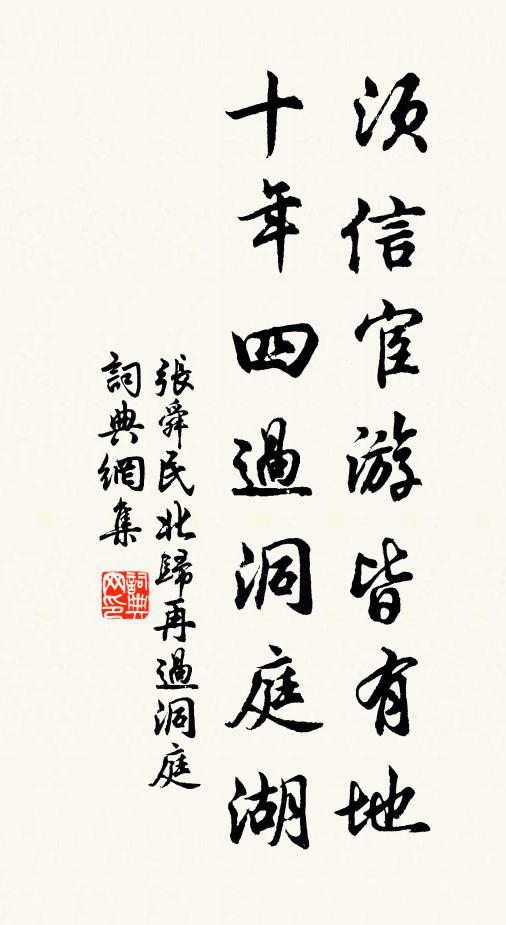 須信宦游皆有地
十年四過洞庭湖
張舜民北歸再過洞庭
詞典網集
詞典网印